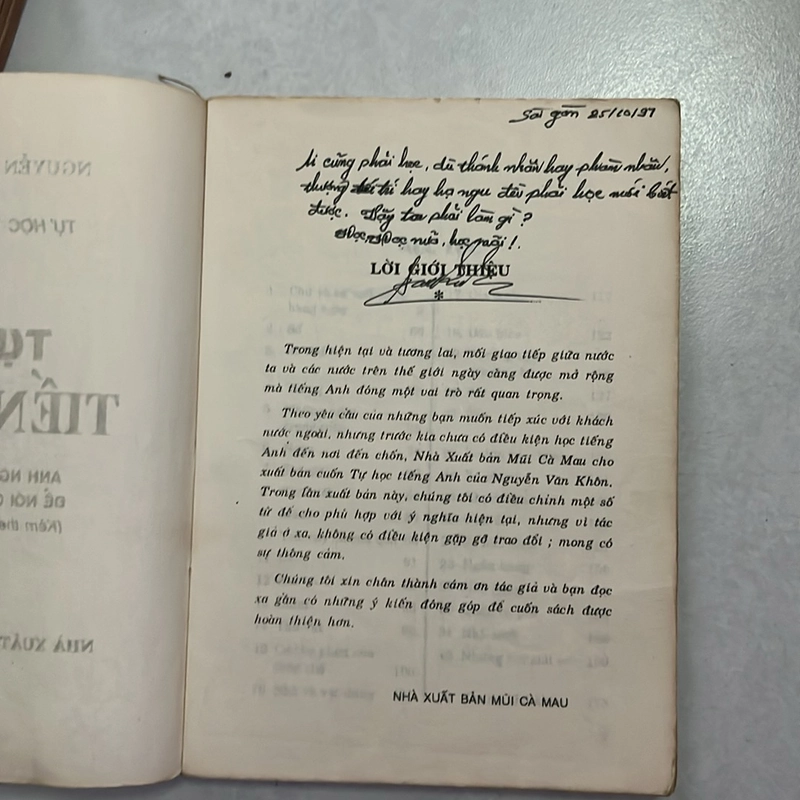 Sài gòn 25/10/97
Ai cũng phải học, dù thánh nhân hay phàm nhân,
thượng trí hay hạ ngu đều phải học mới biết
được. Vậy ta phải làm gì?
Học, Học nữa, học mãi!.
LỜI GIỚI THIỆU
*
Trong hiện tại và tương lai, mối giao tiếp giữa nước
ta và các nước trên thế giới ngày càng được mở rộng
mà tiếng Anh đóng một vai trò rất quan trọng.
Theo yêu cầu của những bạn muốn tiếp xúc với khách
nước ngoài, nhưng trước kia chưa có điều kiện học tiếng
Anh đến nơi đến chốn, Nhà Xuất bản Mũi Cà Mau cho
xuất bản cuốn Tự học tiếng Anh của Nguyễn Văn Khôn.
Trong lần xuất bản này, chúng tôi có điều chỉnh một số
từ để cho phù hợp với ý nghĩa hiện tại, nhưng vì tác
giả ở xa, không có điều kiện gặp gỡ trao đổi ; mong có
sự thông cảm.
Chúng tôi xin chân thành cám ơn tác giả và bạn đọc
xa gần có những ý kiến đóng góp để cuốn sách được
hoàn thiện hơn.
NHÀ XUẤT BẢN MŨI CÀ MAU